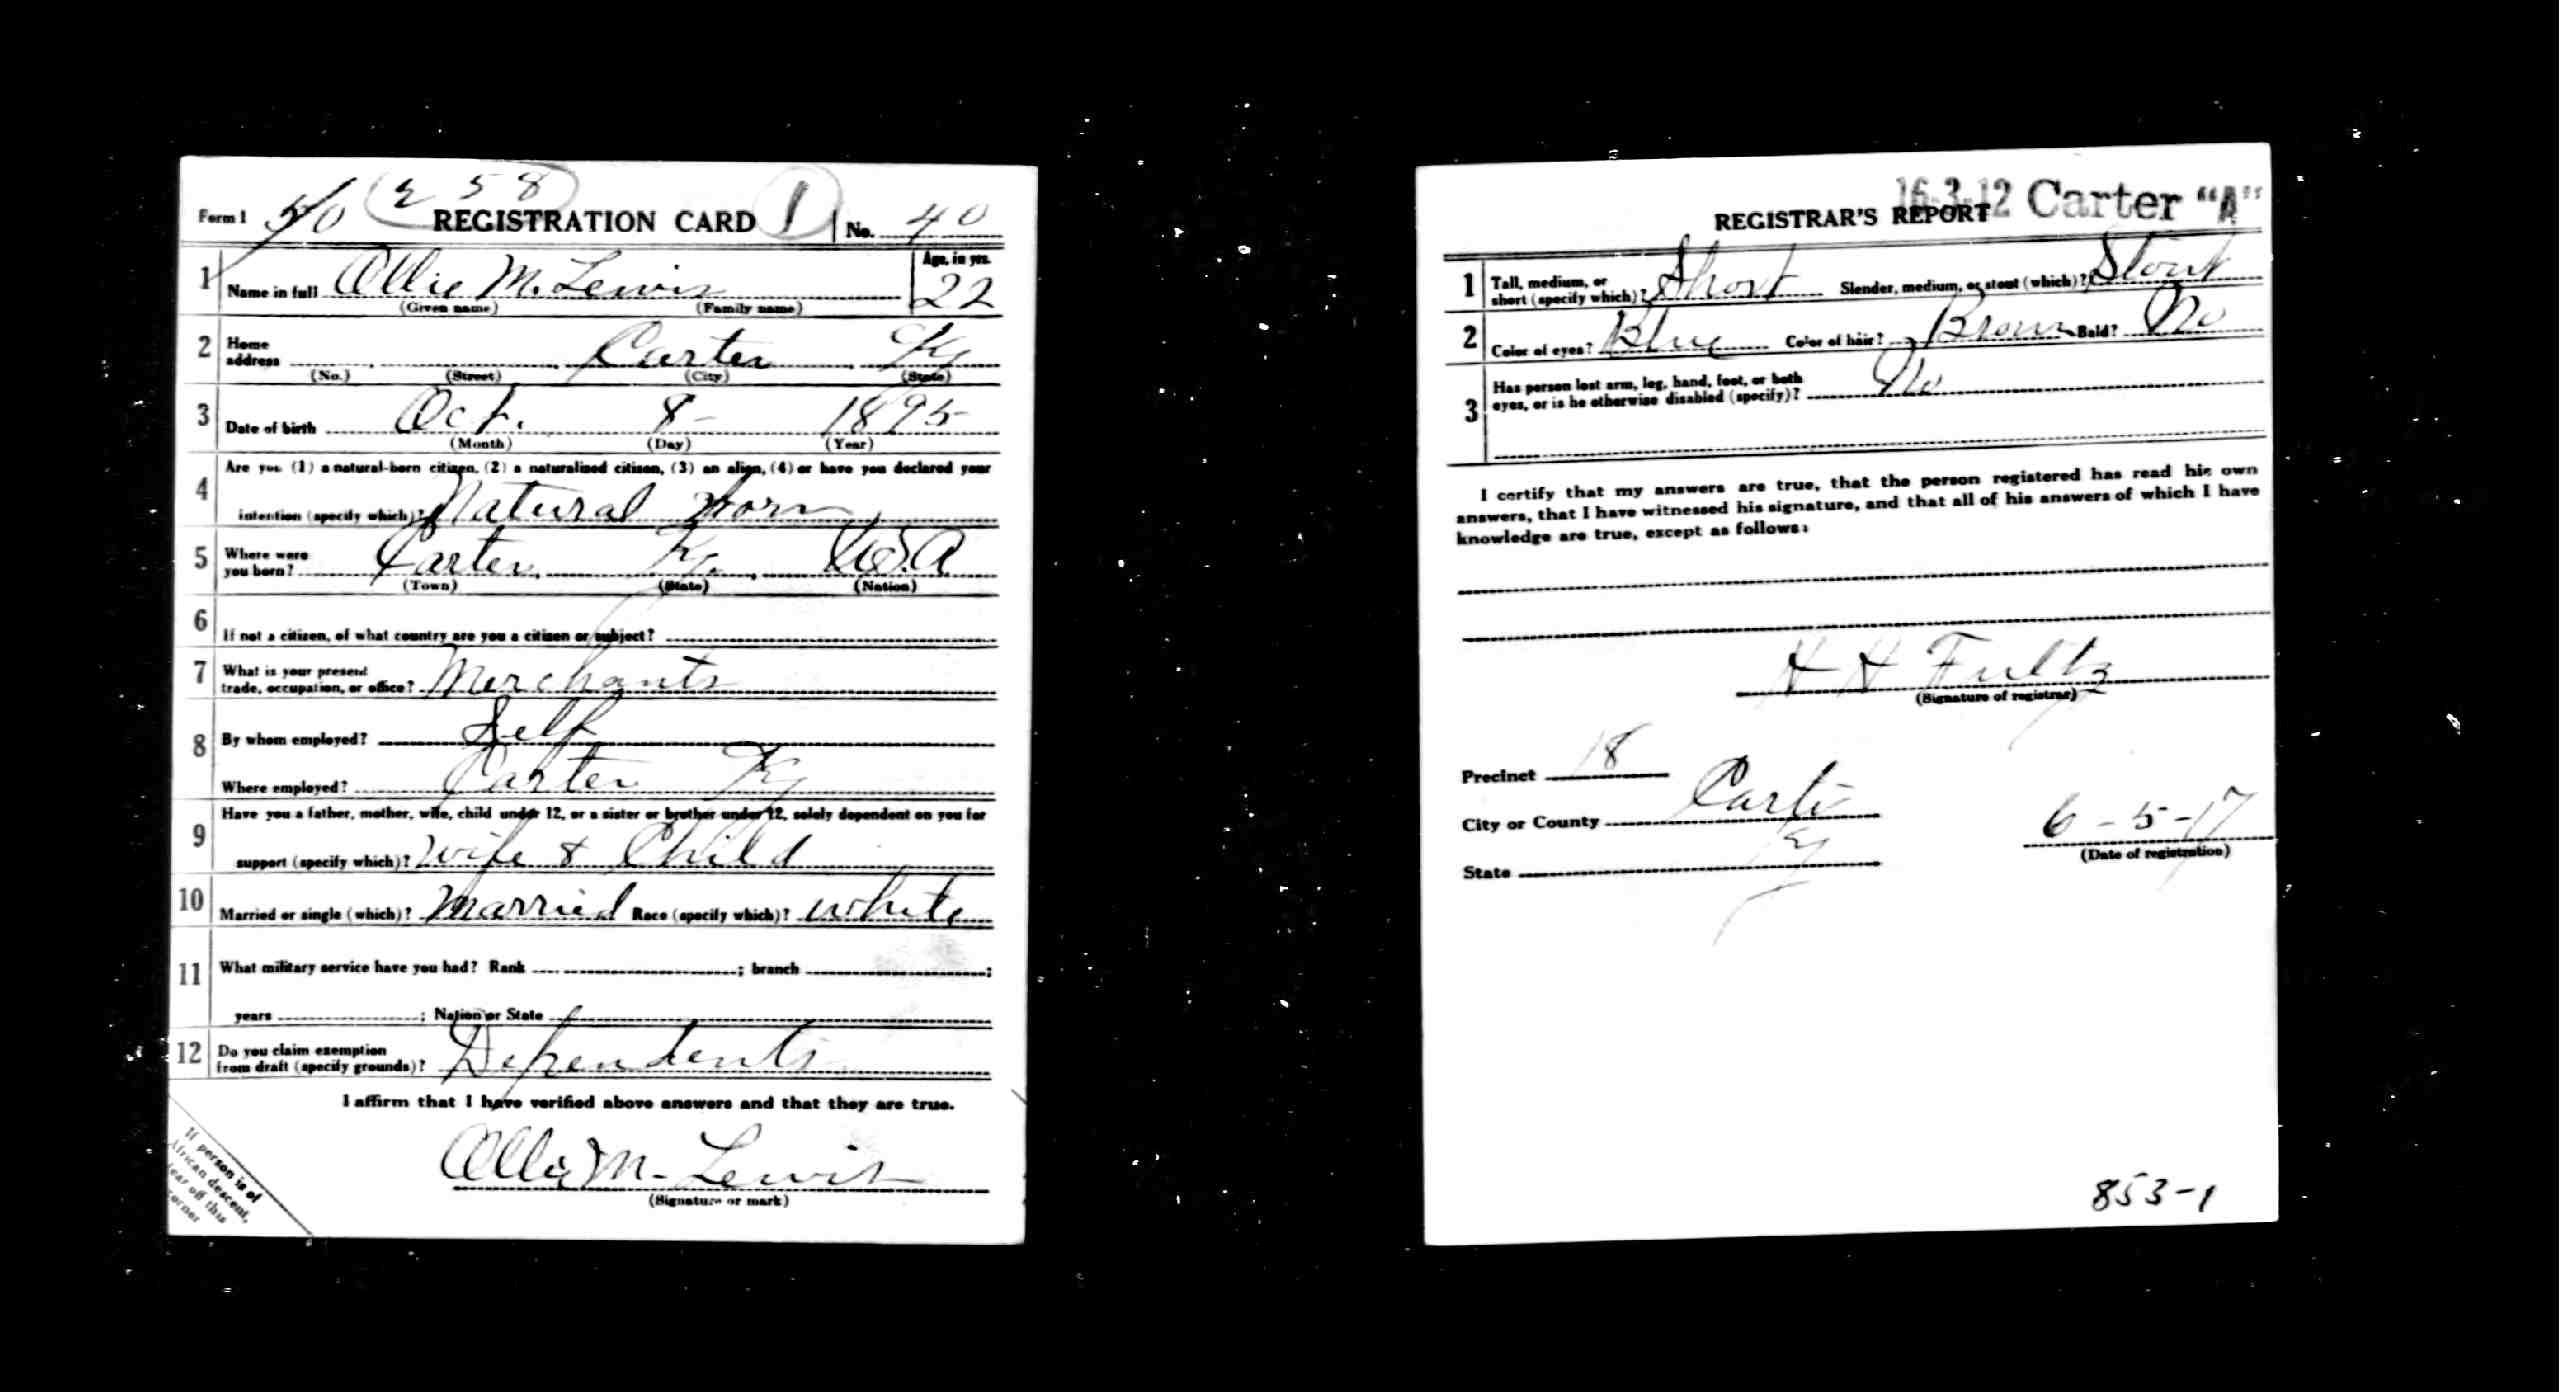 Form 1 40 258 REGISTRATION CARD 1 No. 40
1 Name in full Ollie M. Lewis Age, in yrs. 22
(Given name) (Family name)
2 Home address Carter, Ky
(No.) (Street) (City) (State)
3 Date of birth Oct. 8 - 1895
(Month) (Day) (Year)
4 Are you (1) a natural-born citizen, (2) a naturalized citizen, (3) an alien, (4) or have you declared your
intention (specify which)? Natural born
5 Where were you born? Carter, Ky., U.S.A
(Town) (State) (Nation)
6 If not a citizen, of what country are you a citizen or subject?
7 What is your present trade, occupation, or office? Merchants
8 By whom employed? Self
Where employed? Carter Ky
9 Have you a father, mother, wife, child under 12, or a sister or brother under 12, solely dependent on you for
support (specify which)? Wife & Child
10 Married or single (which)? Married Race (specify which)? white
11 What military service have you had? Rank ; branch ;
years ; Nation or State
12 Do you claim exemption from draft (specify grounds)? Dependents
I affirm that I have verified above answers and that they are true.
Ollie M. Lewis
(Signature or mark)
If person is of
African descent,
tear off this
corner
16-3-12 Carter "A"
REGISTRAR'S REPORT
1 Tall, medium, or short (specify which)? Short Slender, medium, or stout (which)? Stout
2 Color of eyes? Blue Color of hair? Brown Bald? No
3 Has person lost arm, leg, hand, foot, or both eyes, or is he otherwise disabled (specify)? No
I certify that my answers are true, that the person registered has read his own
answers, that I have witnessed his signature, and that all of his answers of which I have
knowledge are true, except as follows:
H H Fultz
(Signature of registrar)
Precinct 18
City or County Carter
State Ky
6-5-17
(Date of registration)
853-1